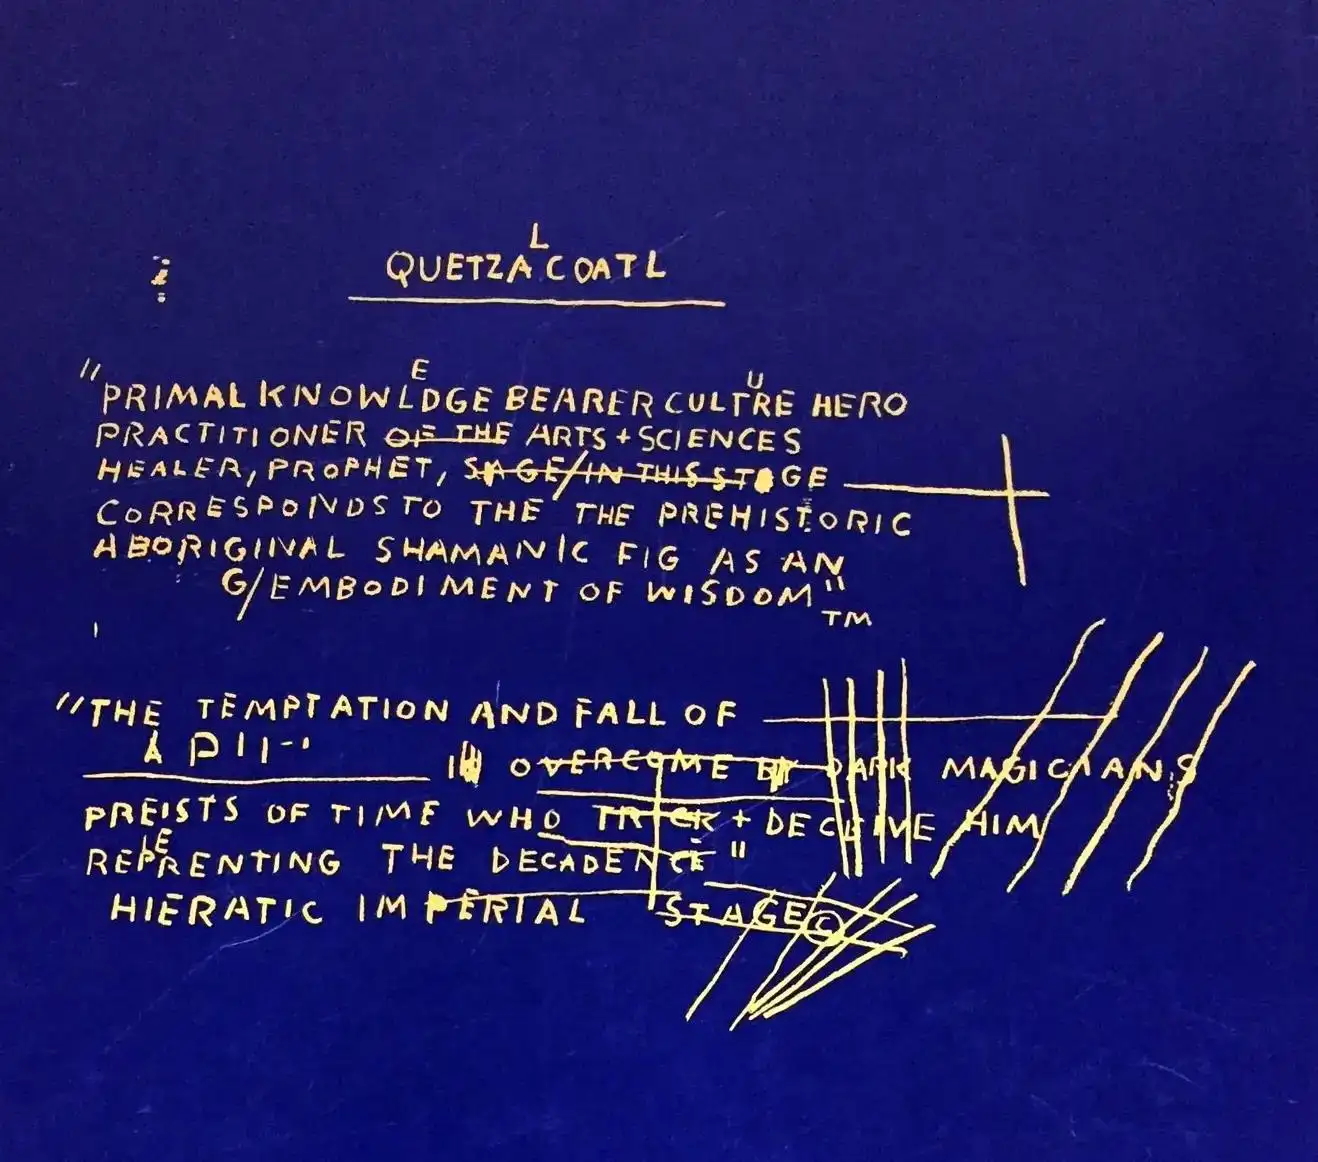 QUETZALCOATL
"PRIMAL KNOWLEDGE BEARER CULTURE HERO
PRACTITIONER OF THE ARTS + SCIENCES
HEALER, PROPHET, SAGE/IN THIS STAGE
CORRESPONDS TO THE THE PREHISTORIC
ABORIGINAL SHAMANIC FIG AS AN
G/EMBODIMENT OF WISDOM"
TM
"THE TEMPTATION AND FALL OF
OVERCOME BY DARK MAGICIANS
PREISTS OF TIME WHO TRICK + DECEIVE HIM
REPRENTING THE DECADENCE"
HIERATIC IMPERIAL STAGE ©